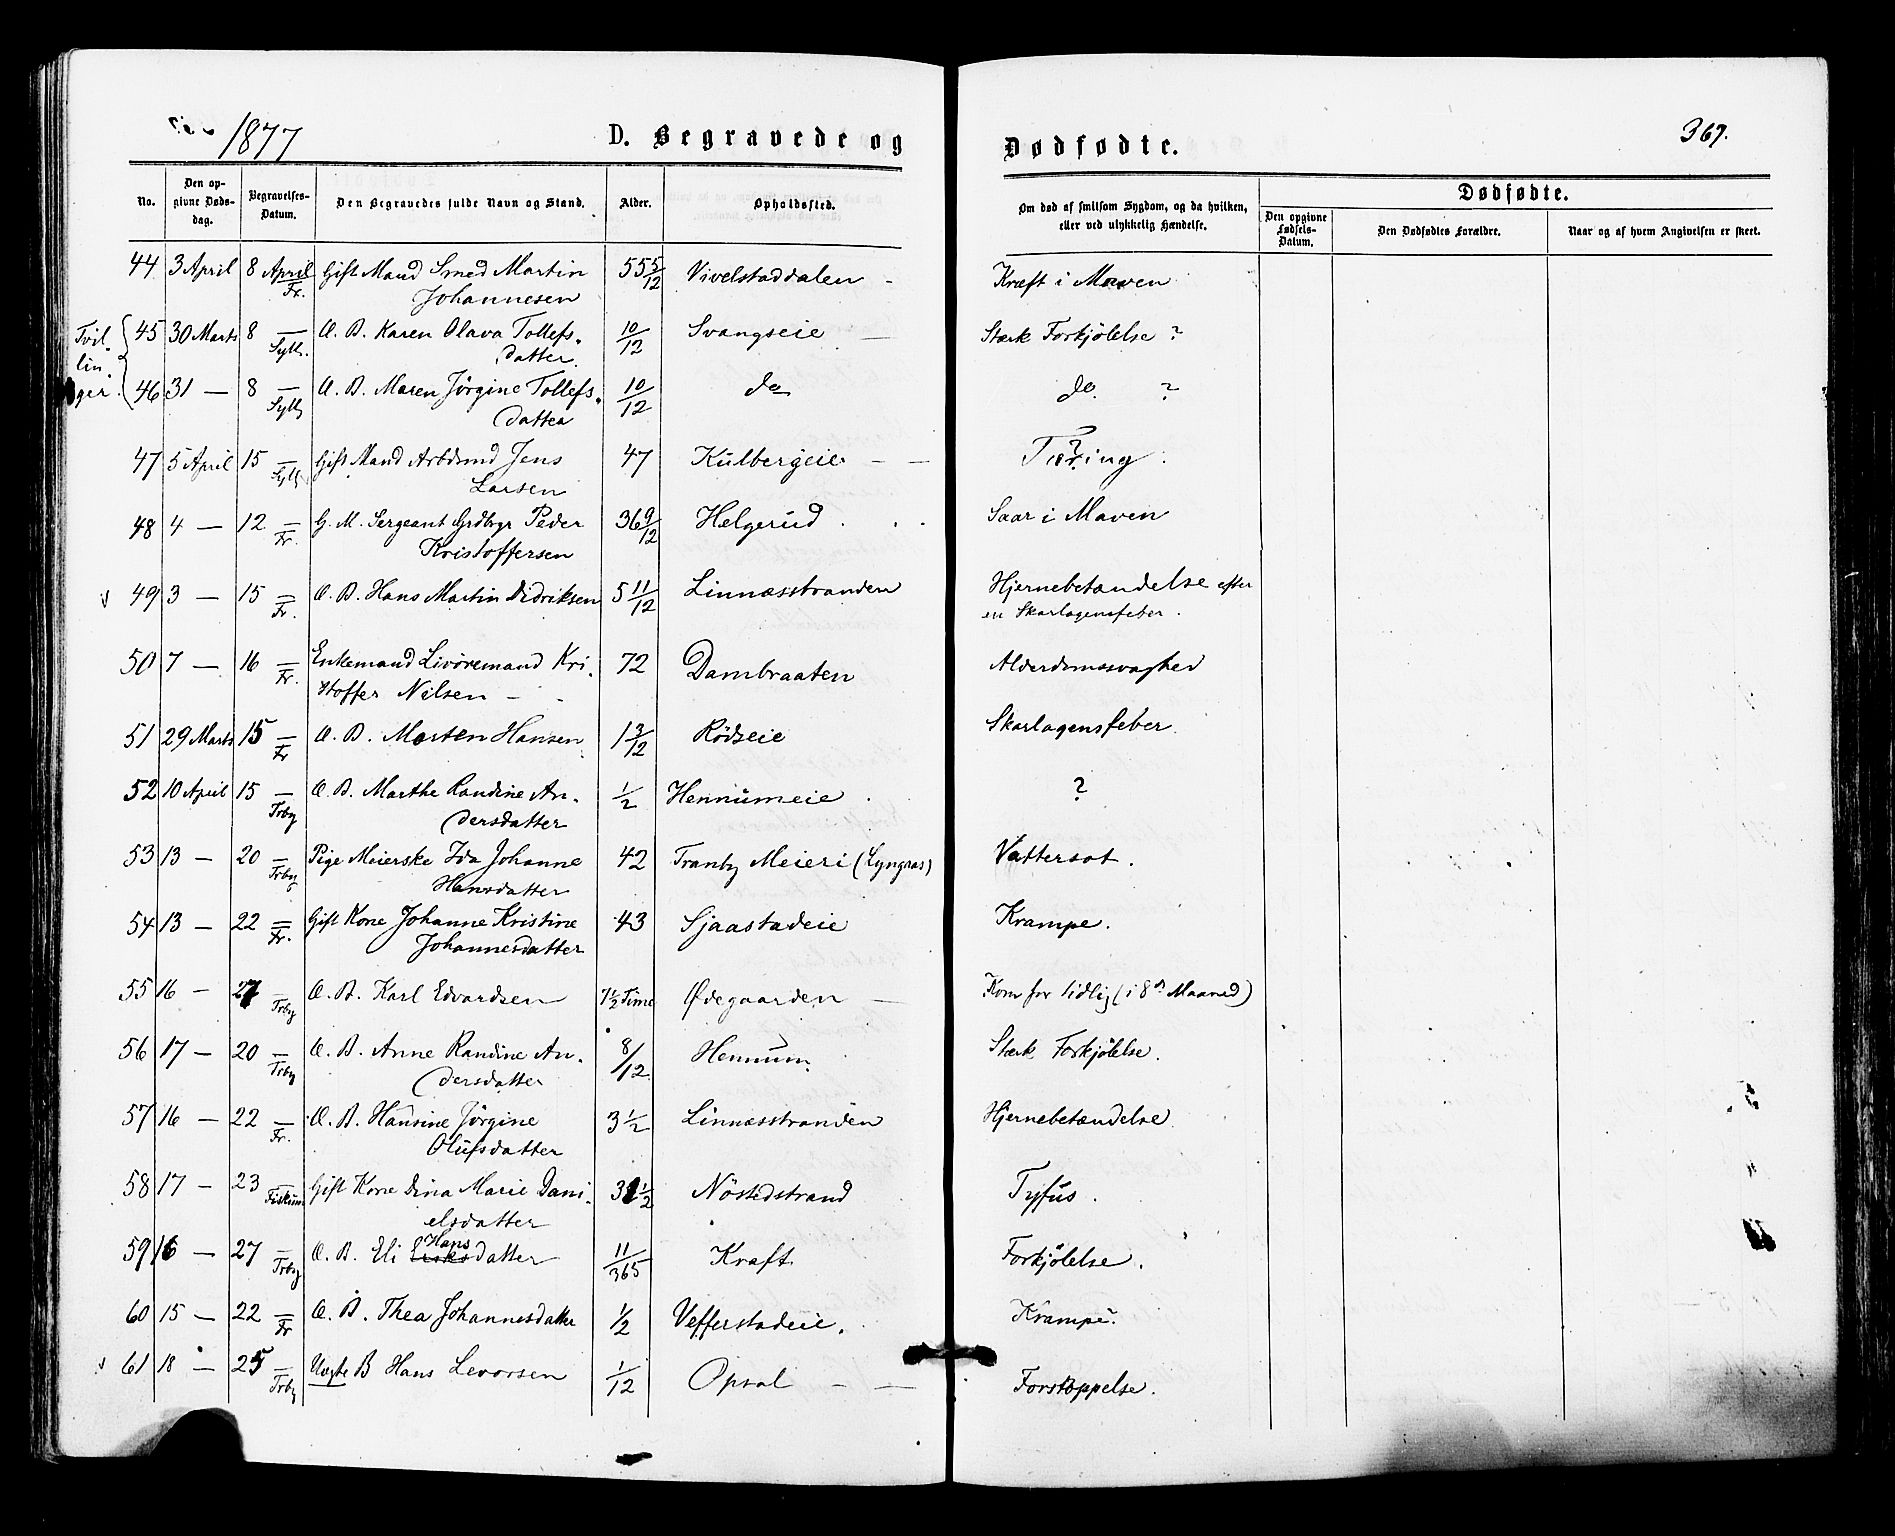 1877
D. Begravede og
Dødfødte.
367.
No.
Den op-
givne Døds-
dag.
Begravelses-
Datum.
Den Begravedes fulde Navn og Stand.
Alder.
Opholdssted.
Om død af smitsom Sygdom, og da hvilken,
eller ved ulykkelig Hændelse.
Dødfødte.
Den opgivne
Fødsels-
Datum.
Den Dødfødtes Forældre.
Naar og af hvem Angivelsen er skeet.
44 3 April 8 April Fr. Gift Mand Smed Martin 55 5/12 Vivelstaddalen - Kræft i Maven
Johannesen
Tvil-
lin-
ger
45 30 Marts 8 — Sylli. U. B. Karen Olava Tollefs- 10/12 Svangseie — Stærk Forkjølelse ?
datter
46 31 — 8 — Sylli U. B. Maren Jørgine Tollefs- 10/12 do do. ?
datter
47 5 April 15 — Sylli Gift Mand Arbdsmd Jens 47 Kulbergeie — — Tæring ?
Larsen
48 4 — 12 — Fr. G. M. Sergeant Grdbrgr Peder 36 9/12 Helgerud Saar i Maven
Kristoffersen
49 3 — 15 — Fr. U. B. Hans Martin Didriksen 5 11/12 Linnæsstranden Hjernebetændelse efter
en Skarlagensfeber.
50 7 — 16 — Fr. Enkemand Livøremand Kri- 72 Dambraaten Alderdomssvaghed
stoffer Nilsen —
51 29 Marts 15 — Fr U. B. Morten Hansen 1 3/12 Rödseie Skarlagensfeber
52 10 April 15 — Trby U. B. Marthe Randine An- 1/2 Hennumeie ?
dersdatter
53 13 — 20 — Trby Pige Meierske Ida Johanne 42 Tranby Meieri (Lyngaas) Vattersot.
Hansdatter
54 13 — 22 — Fr. Gift Kone Johanne Kristine 43 Sjaastadeie Krampe.
Johannesdatter
55 16 — 27 — Trby U. B. Karl Edvardsen 7½ Time Ødegaarden — Kom for tidlig (i 8de Maaned)
56 17 — 20 — Trby U. B. Anne Randine An- 8/12 Hennum Stærk Forkjölelse.
dersdatter
57 16 — 22 — Fr. U. B. Hansine Jörgine 3 1/2 Linnæsstranden Hjernebetændelse
Olufsdatter
58 17 — 23 Fiskum Gift Kone Dina Marie Dani- 31 1/2 Nöstedstrand Tyfus.
elsdatter
Hans
59 16 — 27 — Trby U. B. Eli Eriksdatter 11/365 Kraft Forkjölelse.
60 15 — 22 — Fr U. B. Thea Johannesdatter 1/2 Vefferstadeie. Krampe.
61 18 — 25 — Trby Uægte B Hans Levorsen 1/12 Opsal — — Forstoppelse.